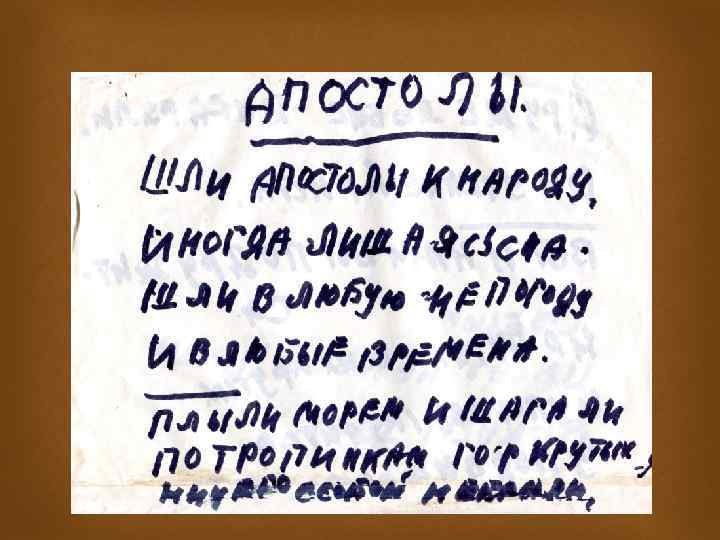 АПОСТОЛЫ.
ШЛИ АПОСТОЛЫ К НАРОДУ,
ИНОГДА ЛИШАЯСЬ СНА.
ШЛИ В ЛЮБУЮ НЕПОГОДУ
И В ЛЮБЫЕ ВРЕМЕНА.
ПЛЫЛИ МОРЕМ И ШАГАЛИ
ПО ТРОПИНКАМ ГОР КРУТЫХ,